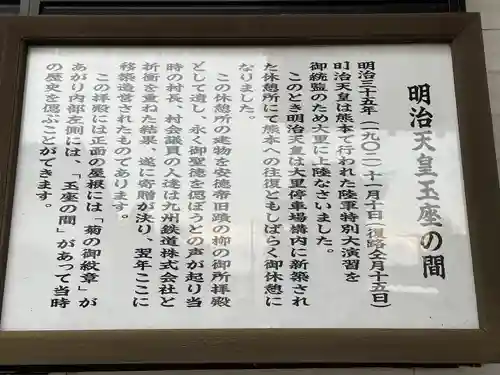 明治天皇玉座の間
明治三十五年(一九〇二)十一月十日(復路仝月十五日)
明治天皇は熊本で行われた陸軍特別大演習を
御統監のため大里に上陸なさいました。
このとき明治天皇は大里停車場構内に新築され
た休憩所にて熊本への往復ともしばらく御休憩に
なりました。
この休憩所の建物を安徳帝旧蹟の柳の御所拝殿
として遺し、永く御聖徳を偲ぼうとの声が起り当
時の村長、村会議員の人達は九州鉄道株式会社と
折衝を重ねた結果、遂に寄贈が決り、翌年ここに
移築造営されたものであります。
この拝殿には正面の屋根には「菊の御紋章」が
あがり内部左側には、「玉座の間」があって当時
の歴史を偲ぶことができます。